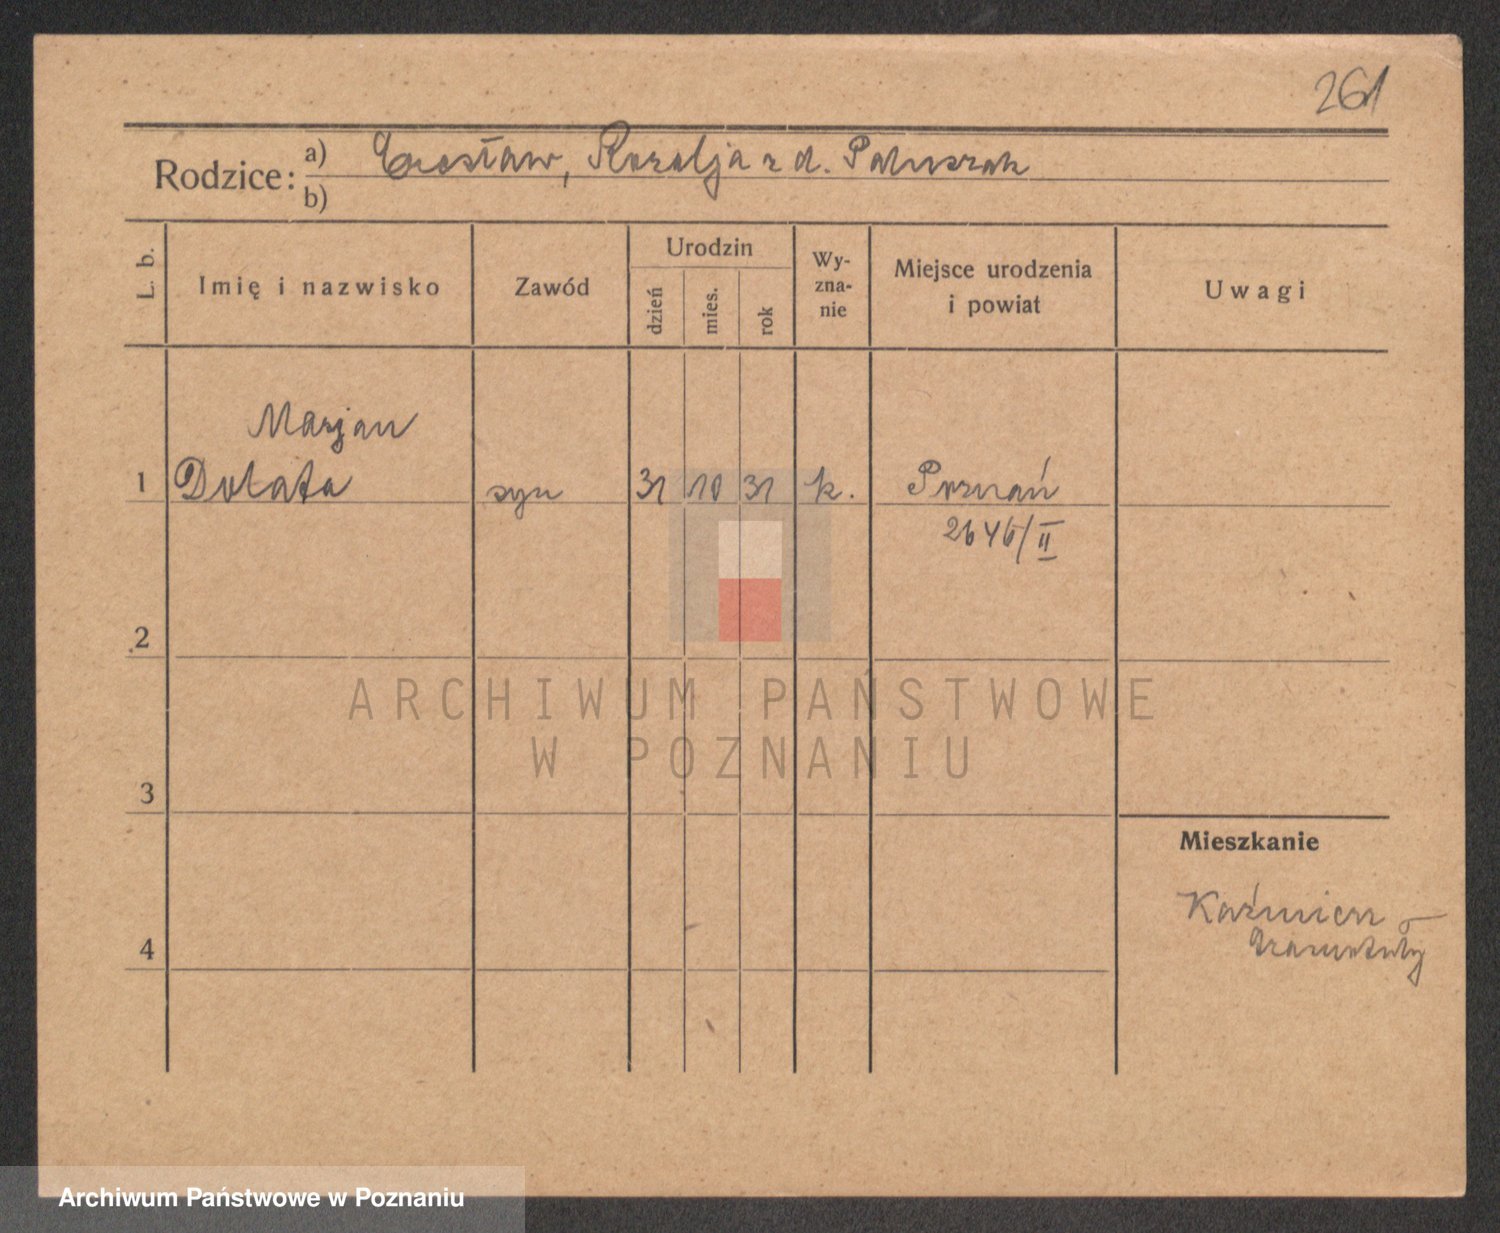 261
Rodzice: a) Czesław, Rozalja z d. Paluszak
b)
L. b.
Imię i nazwisko
Zawód
Urodzin
dzień
mies.
rok
Wy-
zna-
nie
Miejsce urodzenia
i powiat
Uwagi
Marjan
1 Dolata syn 31 10 31 k. Poznań
2646/II
2
3
4
Mieszkanie
Kaźmierz
Szamotuły
ARCHIWUM PAŃSTWOWE
W POZNANIU
Archiwum Państwowe w Poznaniu